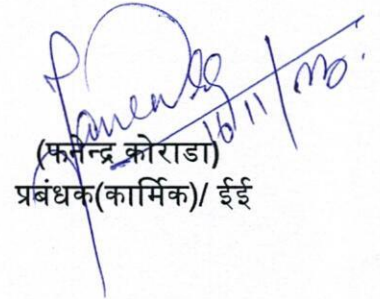 16/11/
(फनेन्द्र कोराडा)
प्रबंधक(कार्मिक)/ ईई